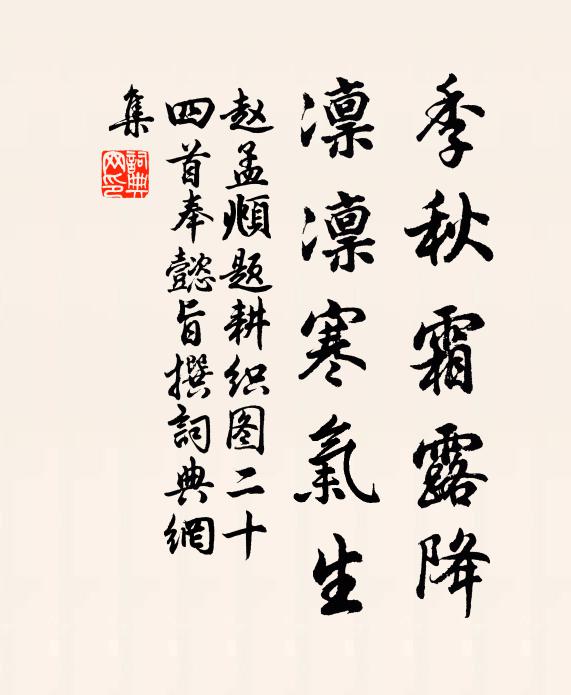 季秋霜露降
凛凛寒氣生
赵孟頫题耕织图二十
四首奉懿旨撰詞典網
集
詞典
网印